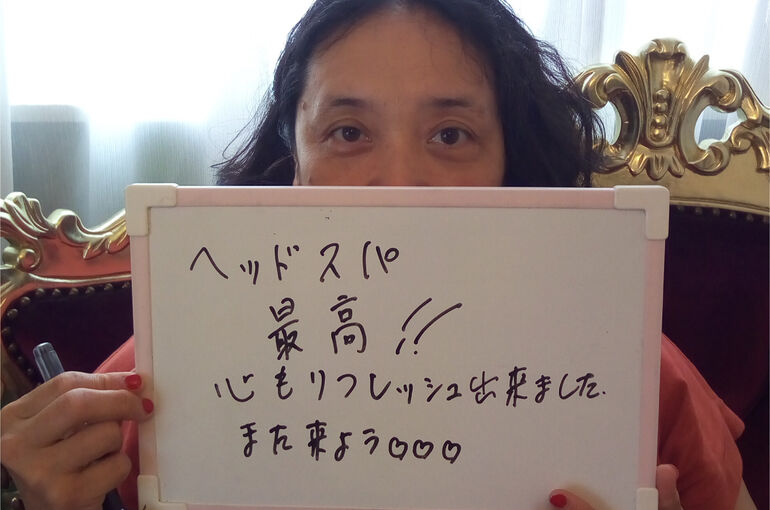 ヘッドスパ
最高!!
心もリフレッシュ出来ました.
また来よう♡♡♡